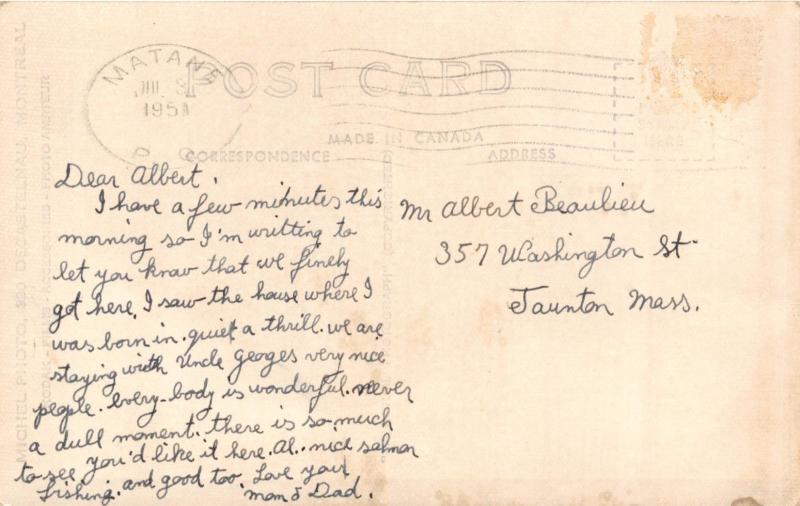 MATANE
JUL 3
1951
P.Q.
POST CARD
MADE IN CANADA
CORRESPONDENCE
ADDRESS
Dear Albert.
I have a few minutes this
morning so I'm writting to
let you know that we finely
got here. I saw the house where I
was born in. quiet a thrill. we are
staying with Uncle Georges very nice
people. every-body is wonderful. never
a dull moment. there is so much
to see you'd like it here. Al. nice salmon
fishing. and good too. Love your
mom & Dad.
Mr Albert Beaulieu
357 Washington St.
Taunton Mass.
MICHEL PHOTO, MONTREAL
PHOTO AMATEUR